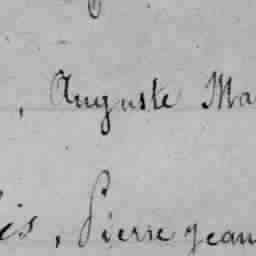 , Auguste Ma
is, Pierre jean